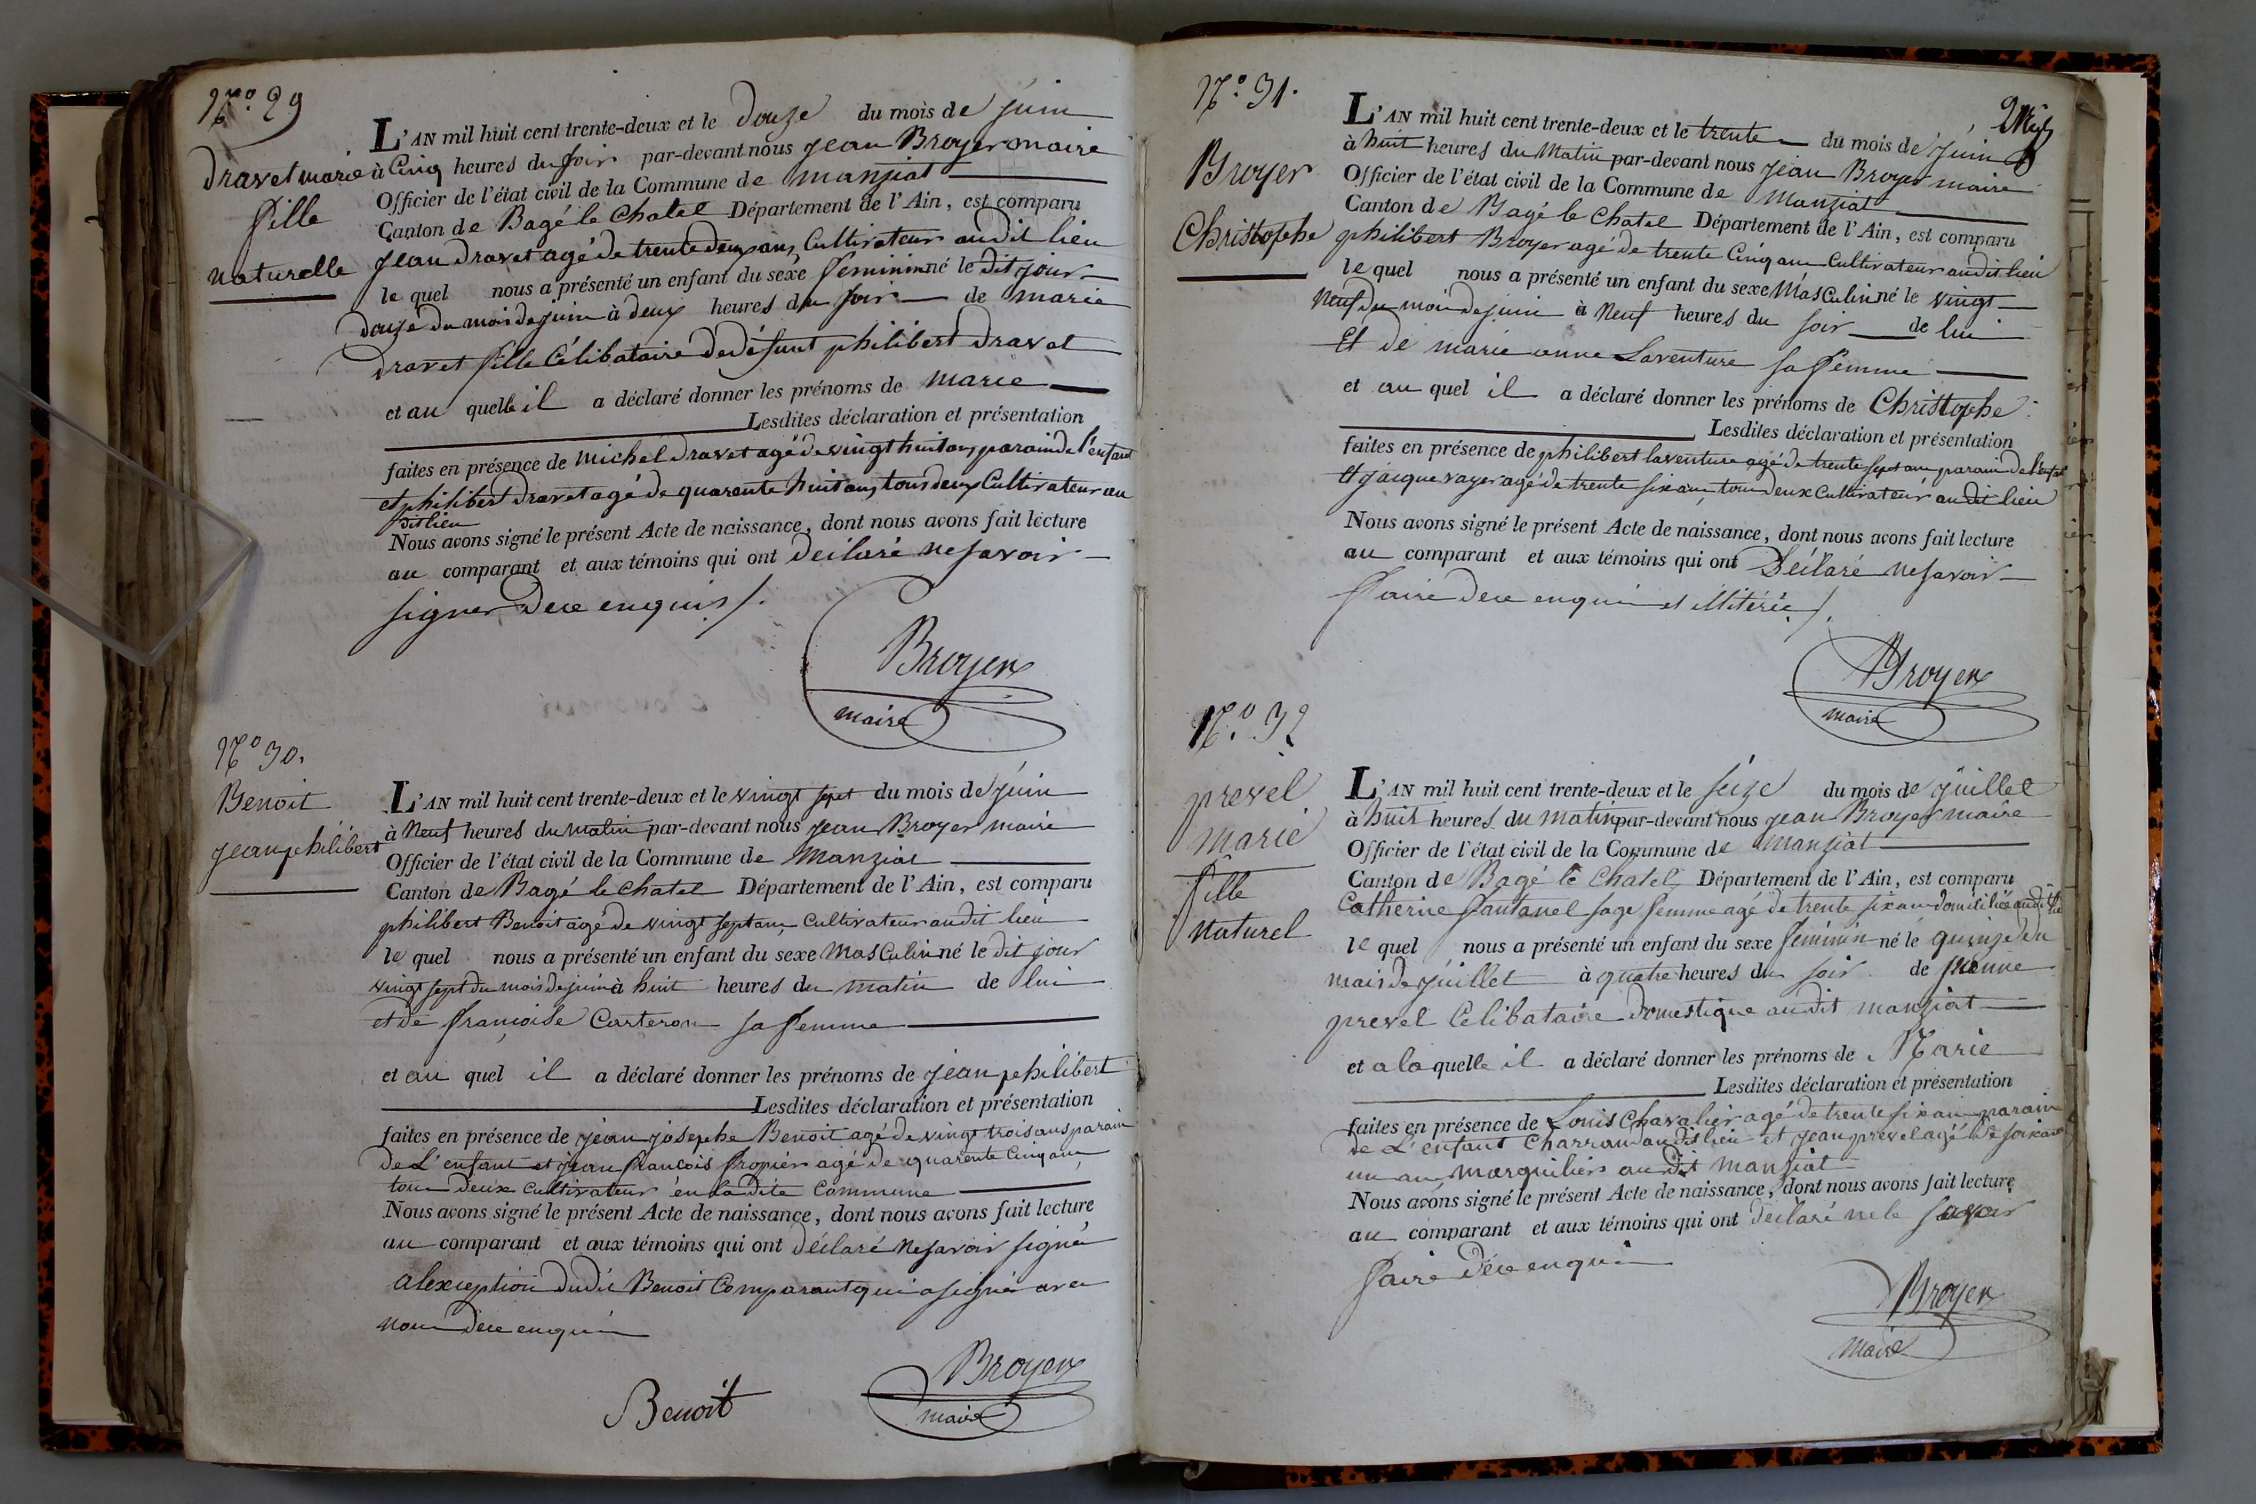 N.o 29
Dravet marie
fille
naturelle
L'AN mil huit cent trente-deux et le douze du mois de juin
à Cinq heures du soir par-devant nous jean Broyer maire
Officier de l'état civil de la Commune de manziat
Canton de Bagé le Chatel Département de l'Ain, est comparu
jean dravet agé de trente deux ans Cultivateur audit lieu
le quel nous a présenté un enfant du sexe feminin né le dit jour
douze du mois de juin à deux heures du soir de marie
dravet fille Célibataire de défunt philibert dravet
et au quelle il a déclaré donner les prénoms de marie
Lesdites déclaration et présentation
faites en présence de michel dravet agé de vingt huit ans parain de l'enfant
et philibert dravet agé de quarente huit ans tous deux Cultivateur au
dit lieu
Nous avons signé le présent Acte de naissance, dont nous avons fait lecture
au comparant et aux témoins qui ont déclaré ne savoir
signer de ce enquis /.
Broyer
maire
N.o 30.
Benoit
jean philibert
L'AN mil huit cent trente-deux et le vingt sept du mois de juin
à Neuf heures du matin par-devant nous jean Broyer maire
Officier de l'état civil de la Commune de Manziat
Canton de Bagé le chatel Département de l'Ain, est comparu
philibert Benoit agé de vingt sept ans Cultivateur audit lieu
le quel nous a présenté un enfant du sexe Masculin né le dit jour
vingt sept du mois de juin à huit heures du matin de lui
et de françoise Carteron sa femme
et au quel il a déclaré donner les prénoms de jean philibert
Lesdites déclaration et présentation
faites en présence de jean josephe Benoit agé de vingt trois ans parain
de L'enfant et jean francois agé de quarente Cinq ans
tous deux Cultivateur en la dite Commune
Nous avons signé le présent Acte de naissance, dont nous avons fait lecture
au comparant et aux témoins qui ont déclaré ne savoir signer
a lexception dudit Benoit Comparant qui a signé avec
nous de ce enquis
Benoit
Broyer
maire
N.o 31.
Broyer
Christophe
L'AN mil huit cent trente-deux et le trente du mois de juin
à huit heures du Matin par-devant nous jean Broyer maire
Officier de l'état civil de la Commune de Manziat
Canton de Bagé le Chatel Département de l'Ain, est comparu
philibert Broyer agé de trente Cinq ans Cultivateur audit lieu
le quel nous a présenté un enfant du sexe Masculin né le vingt
Neuf du mois de juin à Neuf heures du soir de lui
Et de marie anne Laventure sa femme
et au quel il a déclaré donner les prénoms de Christophe
Lesdites déclaration et présentation
faites en présence de philibert laventure agé de trente sept ans parain de l'enfant
Et jacque vayer agé de trente six ans tous deux Cultivateur audit lieu
Nous avons signé le présent Acte de naissance, dont nous avons fait lecture
au comparant et aux témoins qui ont Déclaré ne savoir
faire de ce enquis et illitérée /.
Broyer
maire
N.o 32
prevel
marie
fille
naturel
L'AN mil huit cent trente-deux et le seize du mois de juillet
à huit heures du matin par-devant nous jean Broyer maire
Officier de l'état civil de la Commune de manziat
Canton de Bagé le Chatel Département de l'Ain, est comparu
Catherine fantanel sage femme agé de trente six ans domiciliée audit lieu
le quel nous a présenté un enfant du sexe feminin né le quinze du
mois de juillet à quatre heures du soir de
prevel Celibataire domestique audit manziat
et a la quelle il a déclaré donner les prénoms de Marie
Lesdites déclaration et présentation
faites en présence de Louis Chavalier agé de trente six ans parain
de L'enfant Charron audit lieu et jean prevel agé de soixante
un ans marguilier audit manziat
Nous avons signé le présent Acte de naissance, dont nous avons fait lecture
au comparant et aux témoins qui ont déclaré ne le savoir
faire de ce enquis
Broyer
Maire